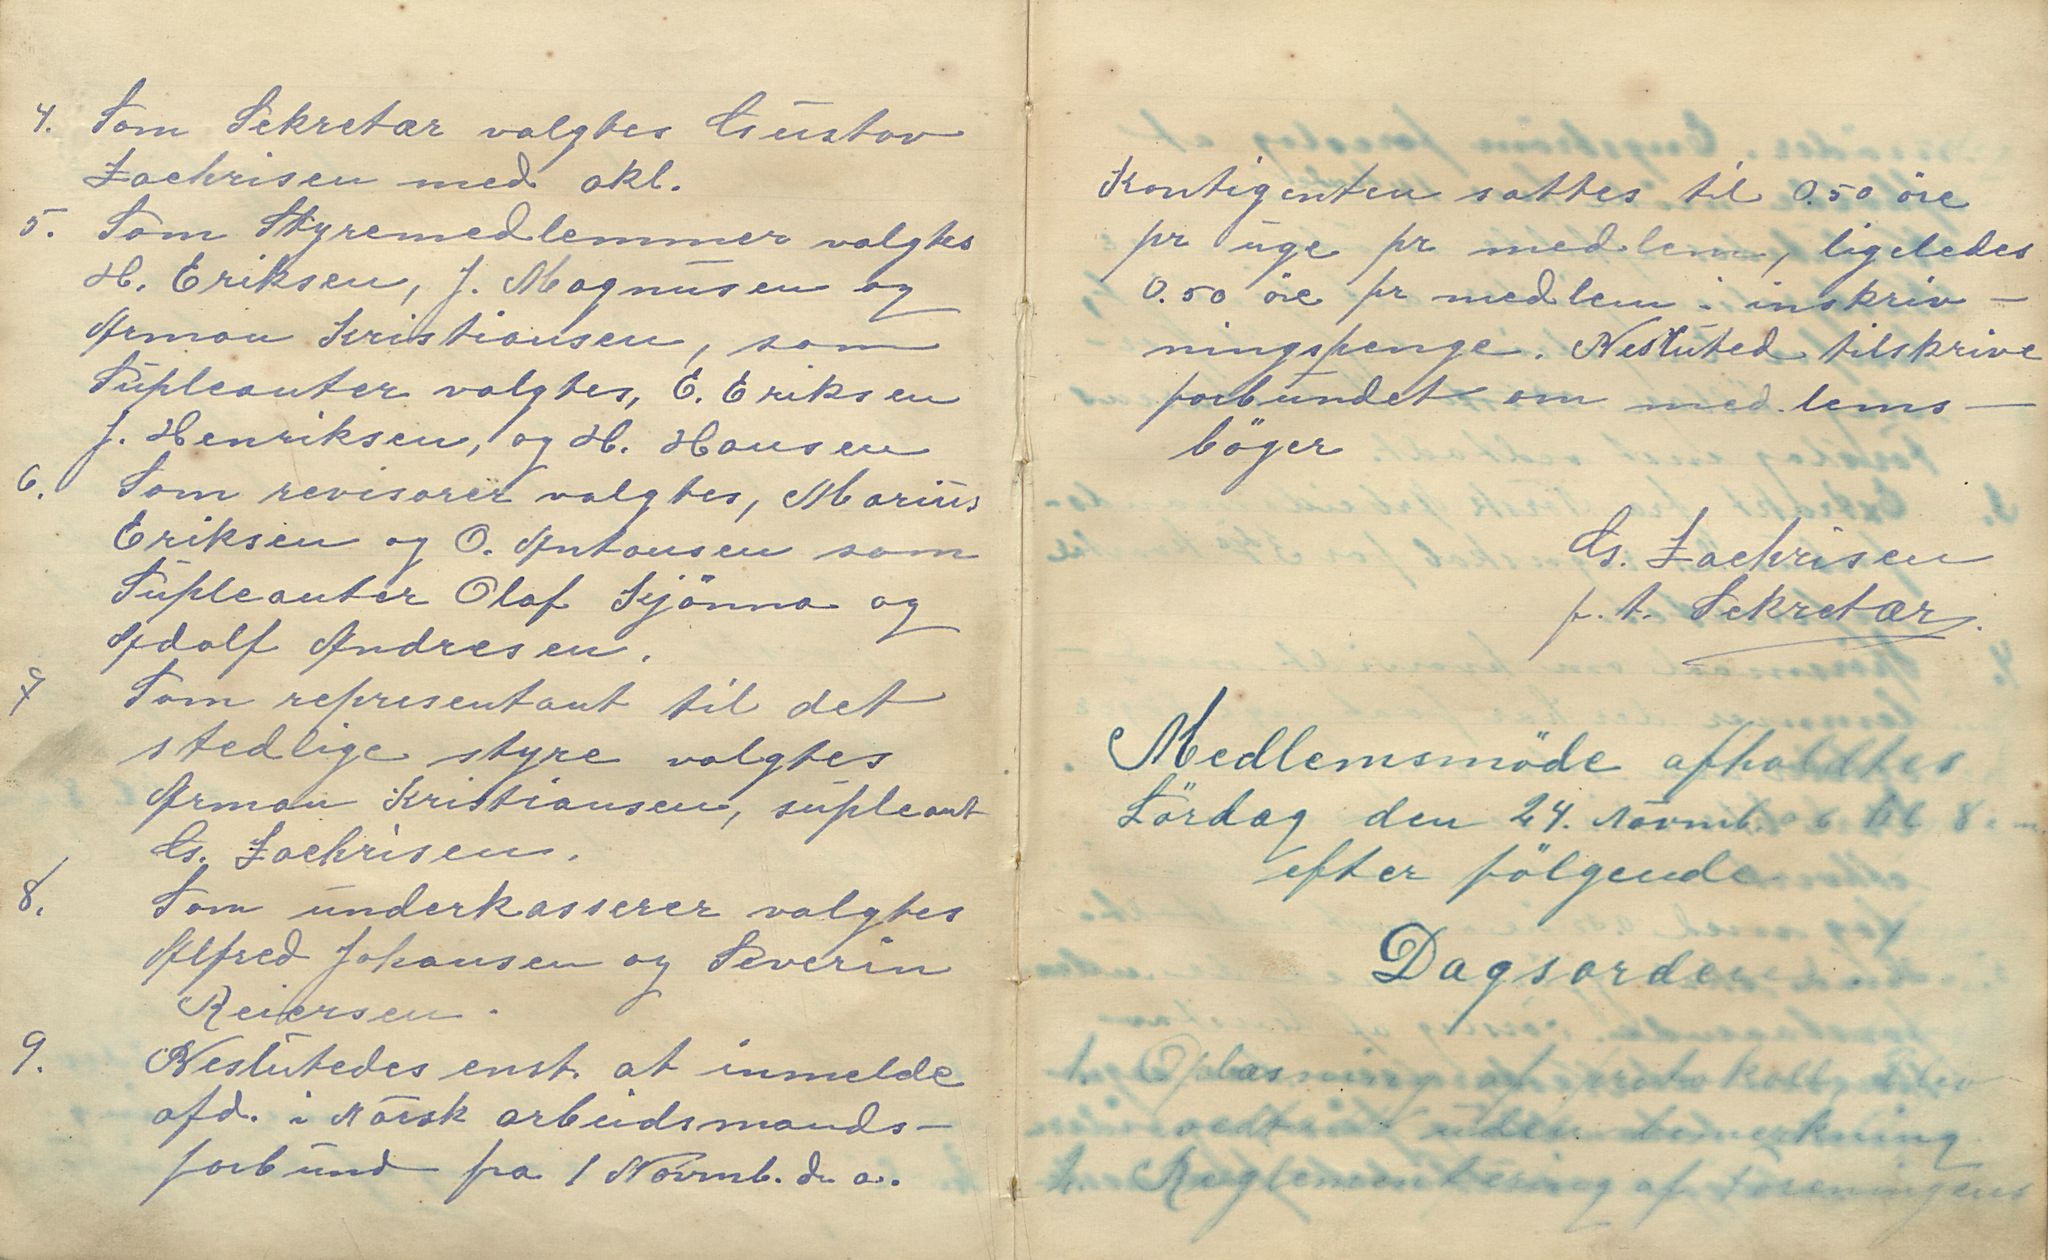 4. Som Sekretær valgtes Gustav
Zachrisen med akl.
5. Som Styremedlemmer valgtes
H. Eriksen, J. Magnusen og
Arman Kristiansen, som
Supleanter valgtes, E. Eriksen
J. Henriksen, og H. Hansen
6. Som revisorer valgtes, Marius
Eriksen og O. Antonsen som
Supleanter Olaf Kjönnø og
Adolf Andresen.
7 Som representant til det
stedlige styre valgtes
Arman Kristiansen, supleant
G. Zachrisen.
8. Som underkasserer valgtes
Alfred Johansen og Severin
Reiersen.
9. Beslutedes enst. at inmelde
afd. i Norsk arbeidsmands-
forbund fra 1 Novmb. d. a.
Kontigenten sattes til 0.50 öre
pr uge pr medlem, ligeledes
0.50 öre pr medlem i inskriv-
ningspenge. Beslutted tilskrive
forbundet om medlems-
böger
G. Zachrisen
p. t. Sekretær.
Medlemsmöde afholdtes
Lördag den 24. Novmb. 06 kl 8
efter fölgende
Dagsorden
1. Oplæsning af protokoll, blev
vedtat uden bemerkning
2. Reglementering af foreningens